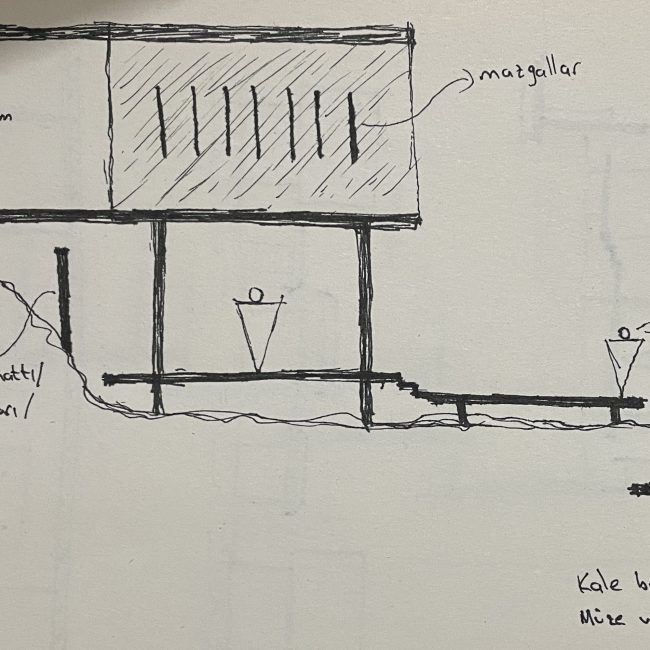 mazgallar
m
attı/
arı/
Kale b
Müze v